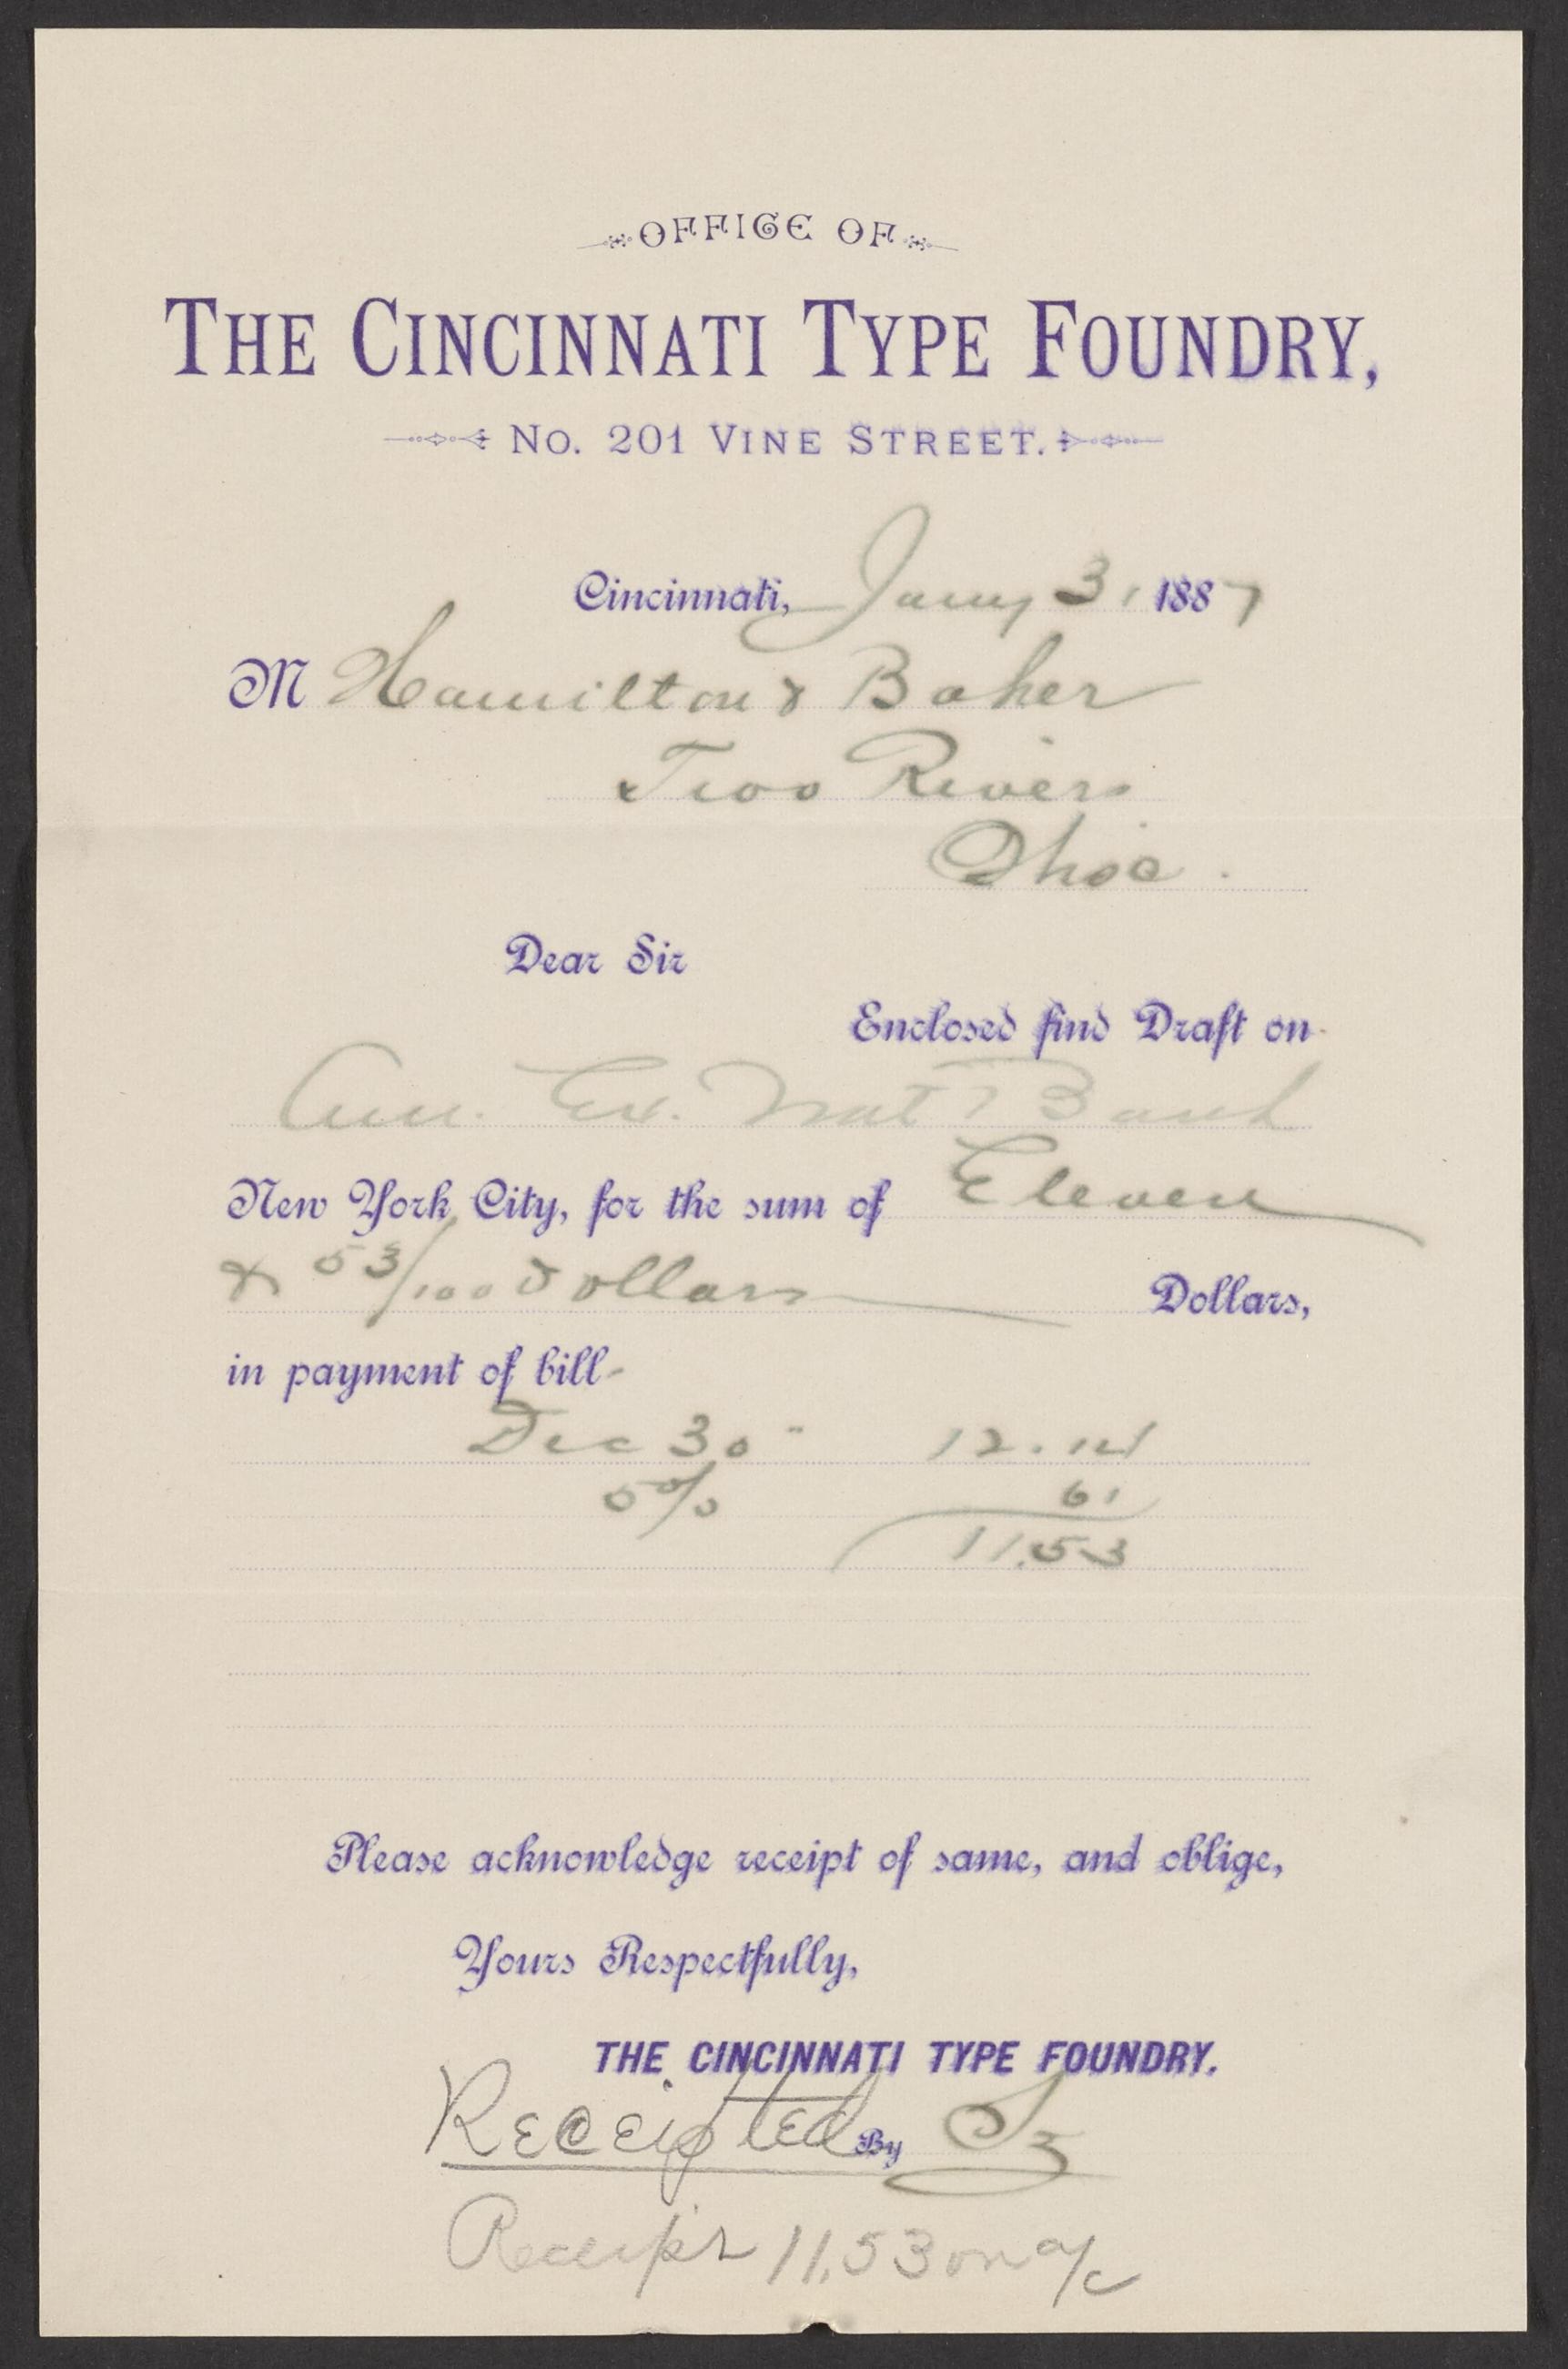 OFFICE OF
THE CINCINNATI TYPE FOUNDRY,
No. 201 VINE STREET.
Cincinnati, Jany 3, 1887
M Hamilton & Baker
Two Rivers
Ohio.
Dear Sir
Enclosed find Draft on
Am. Ex. Nat Bank
New York City, for the sum of Eleven
& 53/100 Dollars Dollars,
in payment of bill-
Dec 30 12.14
5% 61
11.53
Please acknowledge receipt of same, and oblige,
Yours Respectfully,
THE CINCINNATI TYPE FOUNDRY.
Receipted By
Receipt 11.53 on a/c